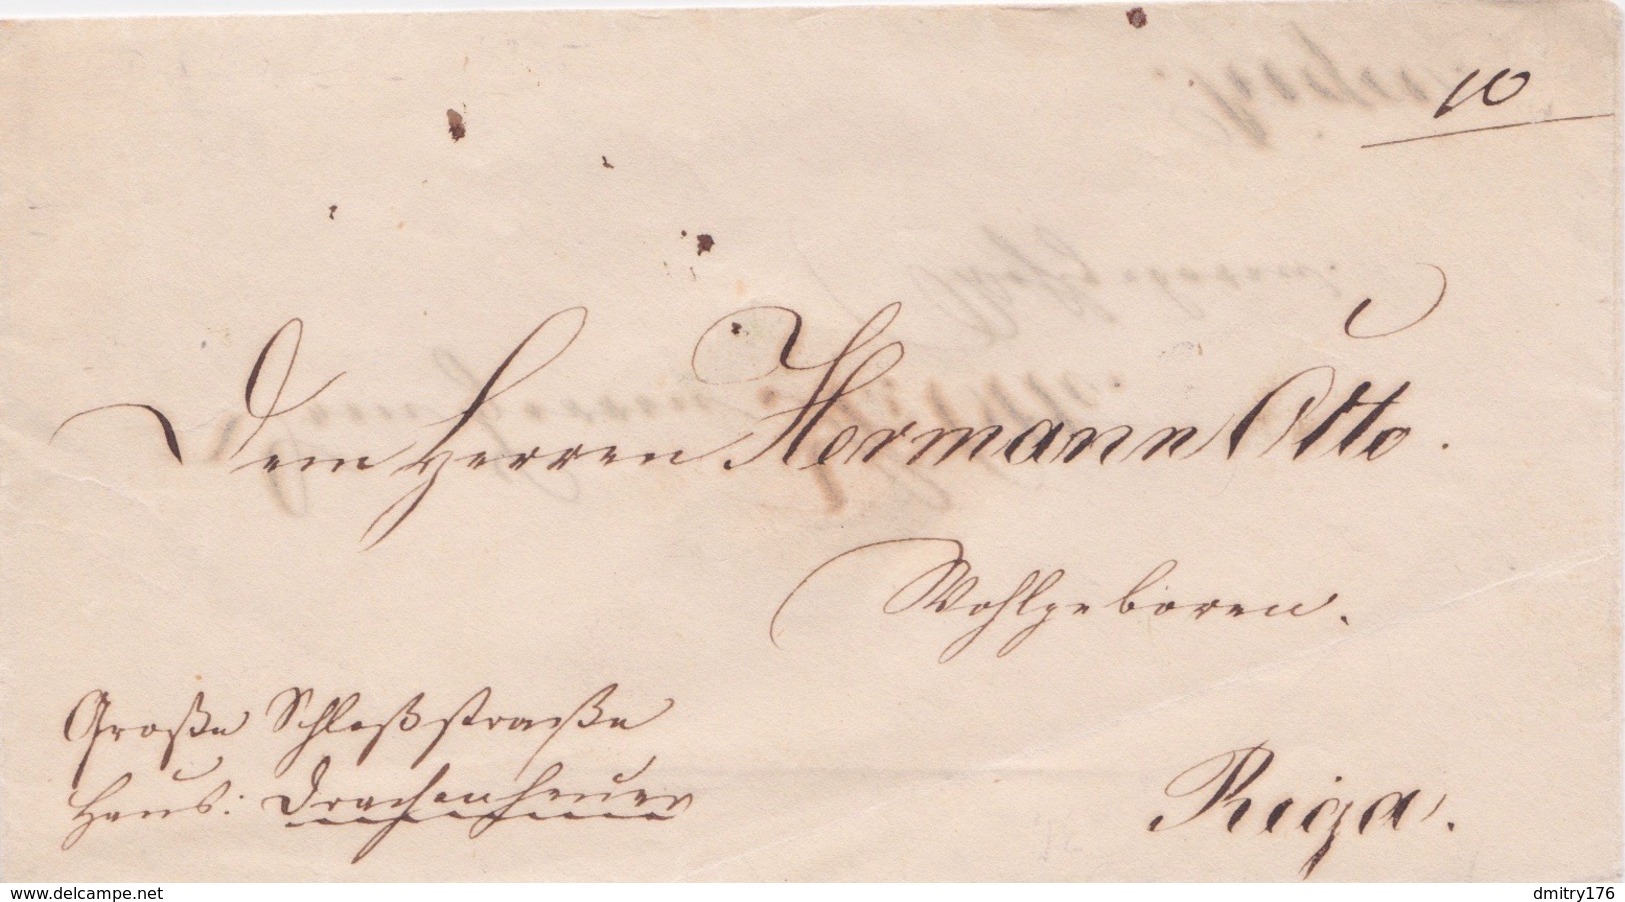 10
Dem Herren Hermann Otto.
Wohlgeboren.
Große Schloßstraße
Haus: Drachenhauer
Riga.
www.delcampe.net
dmitry176